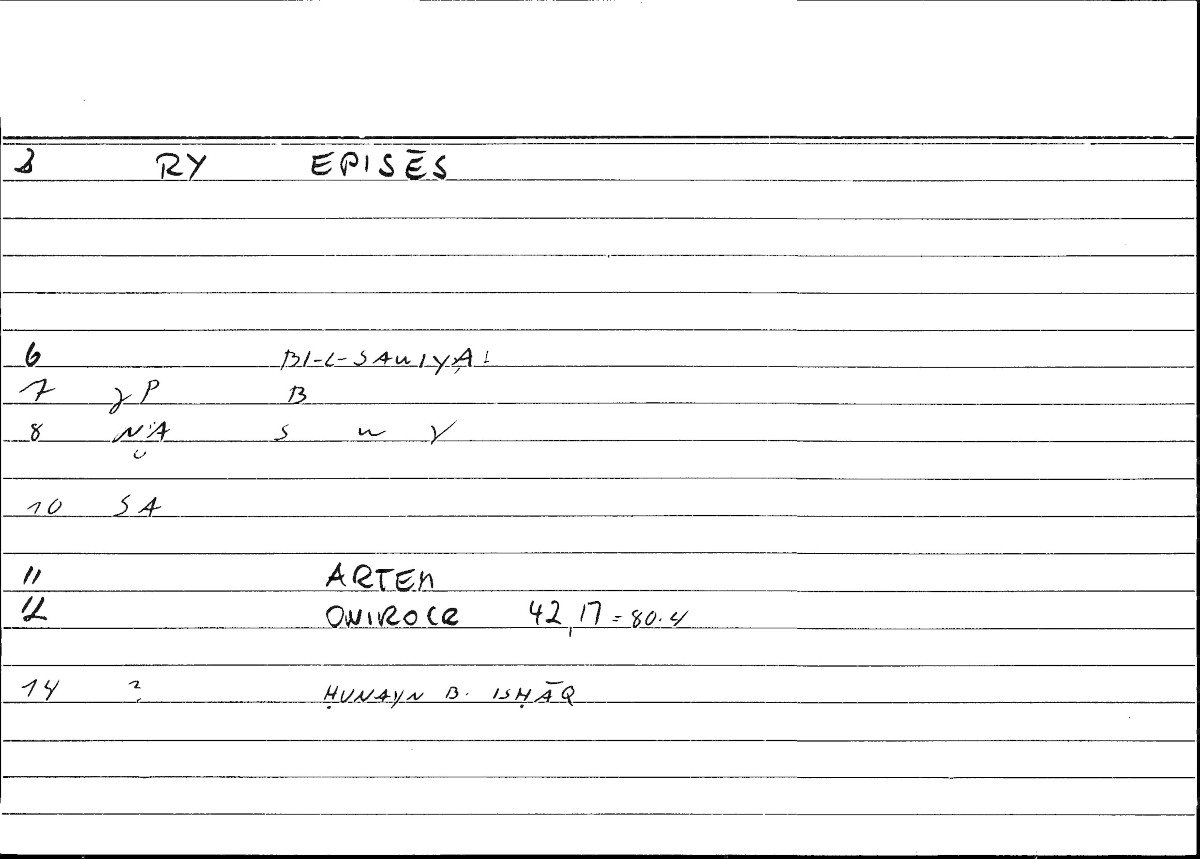 3 RY EPISĒS
6 BI-L-SAWIYẠ!
7 γP B
8 NA S W Y
10 SA
11 ARTEM
12 ONIROCR 42,17 = 80.4
14 ? ḤUNAYN B. ISḤĀQ